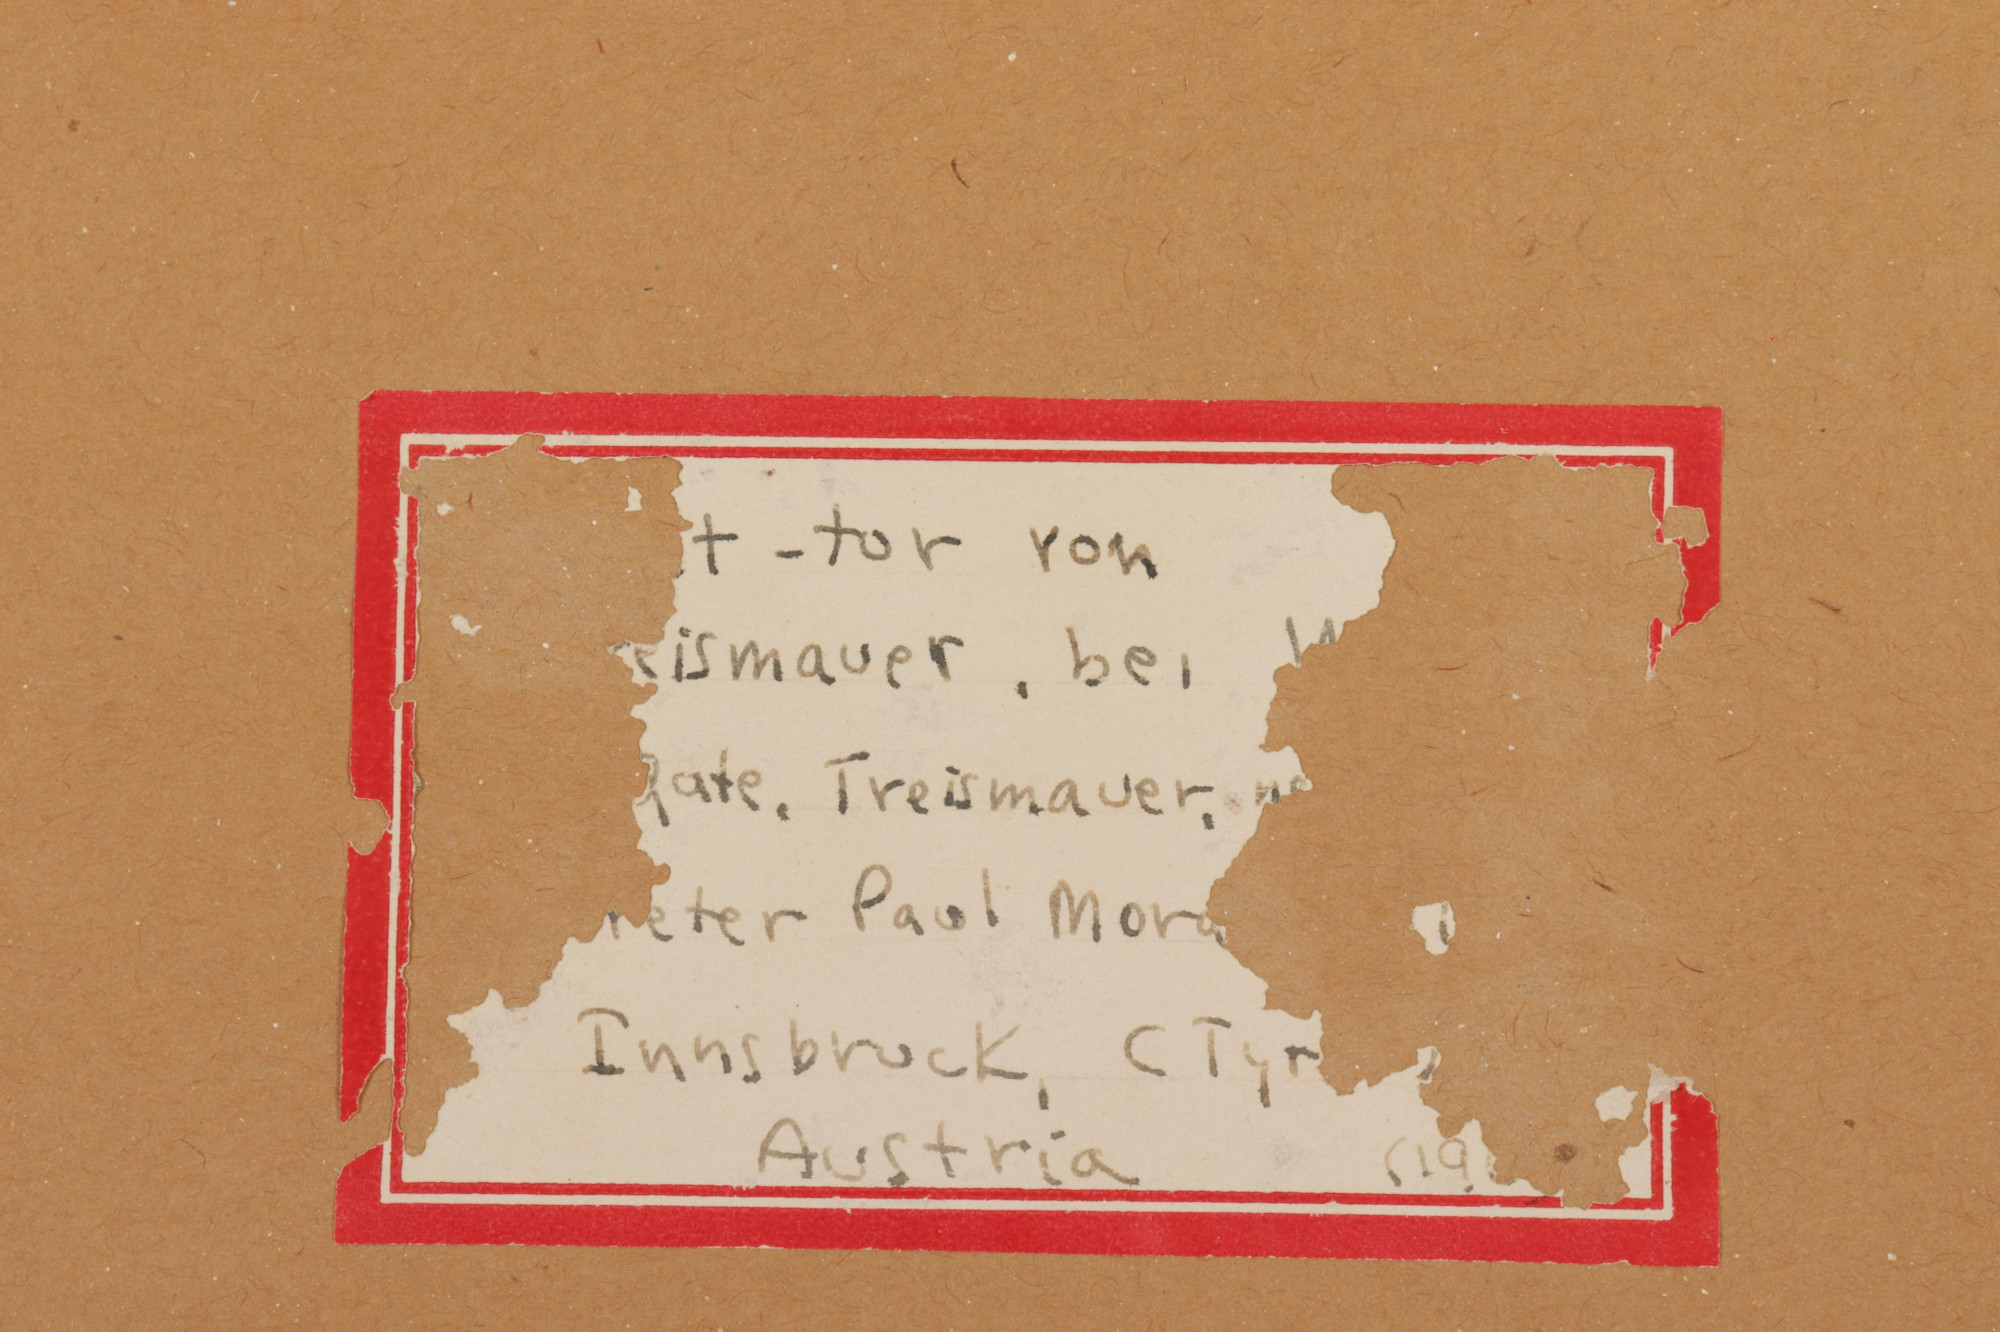 t -tor von
eismauer, bei
gate. Treismauer, ne
Peter Paul Mora
Innsbruck, CTyr
Austria (19